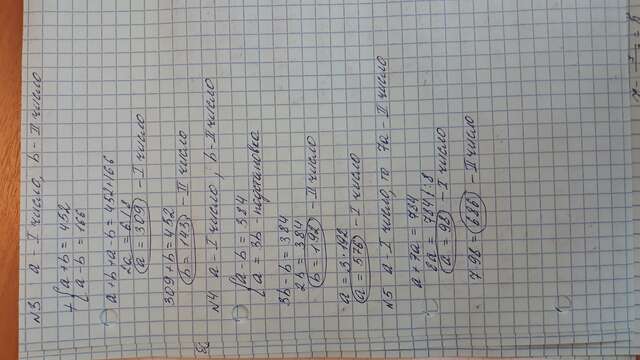 №3 a - I число, b - II число
+ { a + b = 452
a - b = 166
a + b + a - b = 452 + 166
2a = 618
a = 309 - I число
309 + b = 452
b = 143 - II число
№4 a - I число, b - II число
{ a - b = 384
a = 3b подстановка
3b - b = 384
2b = 384
b = 192 - II число
a = 3·192
a = 576 - I число
№5 a - I число, то 7a - II число
a + 7a = 784
8a = 784 |:8
a = 98 - I число
7·98 = 686 - II число